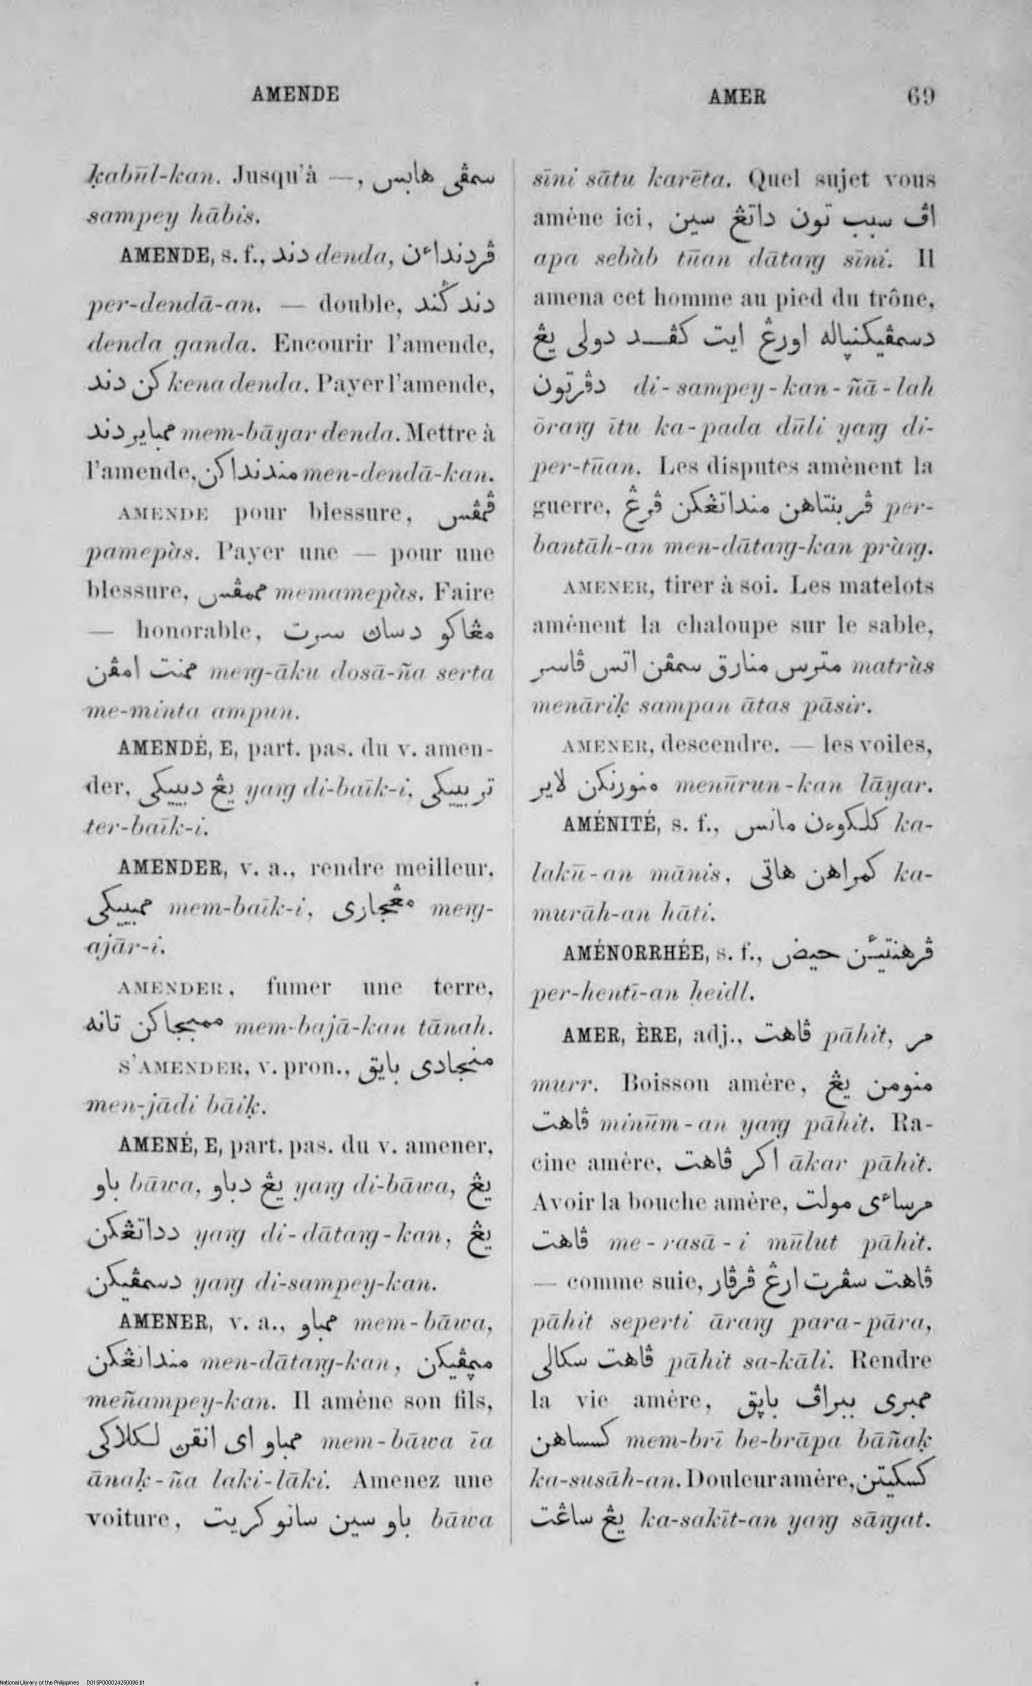 AMENDE
AMER 69
ḳabūl-kan. Jusqu'à —, سمڤى هابس
sampey hābis.
AMENDE, s. f., دند denda, ڤردنداءن
per-dendā-an. — double, دند گند
denda ganda. Encourir l'amende,
کن دند kena denda. Payer l'amende,
ممباير دند mem-bāyar denda. Mettre à
l'amende, مندنداکن men-dendā-kan.
AMENDE pour blessure, ڤمڤس
pamepàs. Payer une — pour une
blessure, ممڤس memamepàs. Faire
— honorable, مڠاکو دساڽ سرت
ممنت امڤن meṅg-āku dosā-ña serta
me-minta ampun.
AMENDÉ, E, part. pas. du v. amen-
der, يڠ دبيکى yang di-baīk-i, تربيکى
ter-baīk-i.
AMENDER, v. a., rendre meilleur,
ممبيکى mem-baīk-i, مڠجارى meng-
ajār-i.
AMENDER, fumer une terre,
ممبجاکن تانه mem-bajā-kan tānah.
S'AMENDER, v. pron., منجادى بايق
men-jādi bāiḳ.
AMENÉ, E, part. pas. du v. amener,
باو bāwa, يڠ دباو yang di-bāwa, يڠ
دداتڠکن yang di-dātang-kan, يڠ
دسمڤيکن yang di-sampey-kan.
AMENER, v. a., ممباو mem-bāwa,
منداتڠکن men-dātang-kan, مڽمڤيکن
meñampey-kan. Il amène son fils,
ممباو اى انقڽ لکلاکى mem-bāwa īa
ānaḳ-ña laki-lāki. Amenez une
voiture, باو سين ساتو کريت bāwa
sīni sātu karēta. Quel sujet vous
amène ici, اڤ سبب تون داتڠ سين
apa sebàb tūan dātang sīni. Il
amena cet homme au pied du trône,
دسمڤيکنڽاله اورڠ ايت کڤد دولى يڠ
دڤرتون di-sampey-kan-ñā-lah
ōrang ītu ka-pada dūli yang di-
per-tūan. Les disputes amènent la
guerre, ڤربنتاهن منداتڠکن ڤرڠ per-
bantāh-an men-dātang-kan pràng.
AMENER, tirer à soi. Les matelots
amènent la chaloupe sur le sable,
مترس منارق سمڤن اتس ڤاسر matrùs
menāriḳ sampan ātas pāsir.
AMENER, descendre. — les voiles,
منورنکن لاير menūrun-kan lāyar.
AMÉNITÉ, s. f., کلکوءن مانس ka-
lakū-an mānis, کمراهن هاتى ka-
murāh-an hāti.
AMÉNORRHÉE, s. f., ڤرهنتيئن حيض
per-hentī-an ḥeidl.
AMER, ÈRE, adj., ڤاهت pāhit, مر
murr. Boisson amère, منومن يڠ
ڤاهت minūm-an yang pāhit. Ra-
cine amère, اکر ڤاهت ākar pāhit.
Avoir la bouche amère, مرساءى مولت
ڤاهت me-rasā-i mūlut pāhit.
— comme suie, ڤاهت سڤرت ارڠ ڤرڤار
pāhit seperti ārang para-pāra,
ڤاهت سکالى pāhit sa-kāli. Rendre
la vie amère, ممبرى ببراڤ باڽق
کسساهن mem-brī be-brāpa bāñaḳ
ka-susāh-an. Douleur amère, کسکيتن
يڠ ساڠت ka-sakīt-an yang sāngat.
National Library of the Philippines